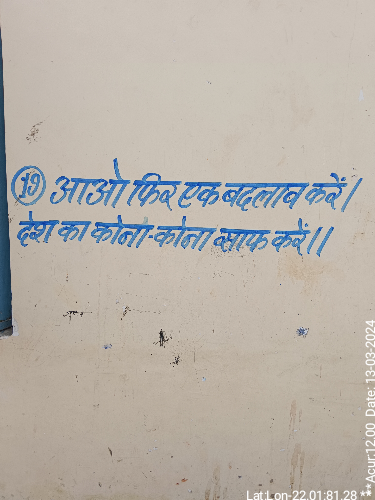 19 आओ फिर एक बदलाव करें।
देश का कोना-कोना साफ करें।।
Lat Lon-22.01:81.28 ***Acur:12.00 Date: 13-03-2024